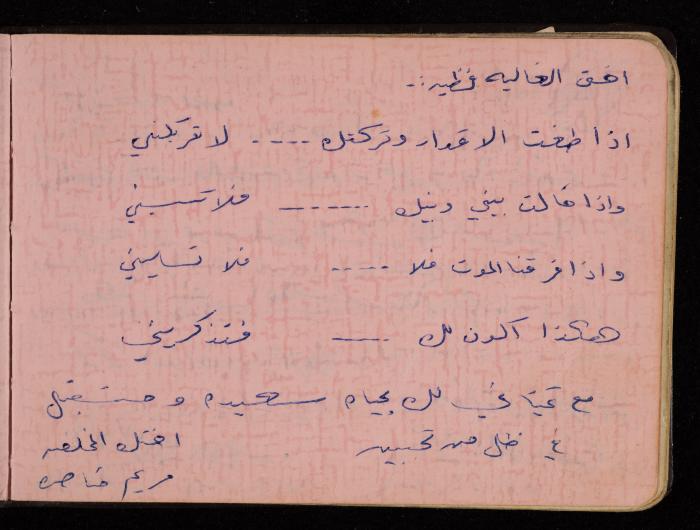 اختي الغاليه فظيه :-
اذا طغت الاقدار وتركتك ---- لا تتركيني
واذا خالت بيني وبينك ------- فلا تنسيني
واذا فرقنا الموت فلا ----- فلا تنسايني
هكذا اكون لك ---- فتذكريني
مع تمنياتي لك بحياه سعيده ومستقبل
في ظل من تحبين اختك المخلصه
مريم